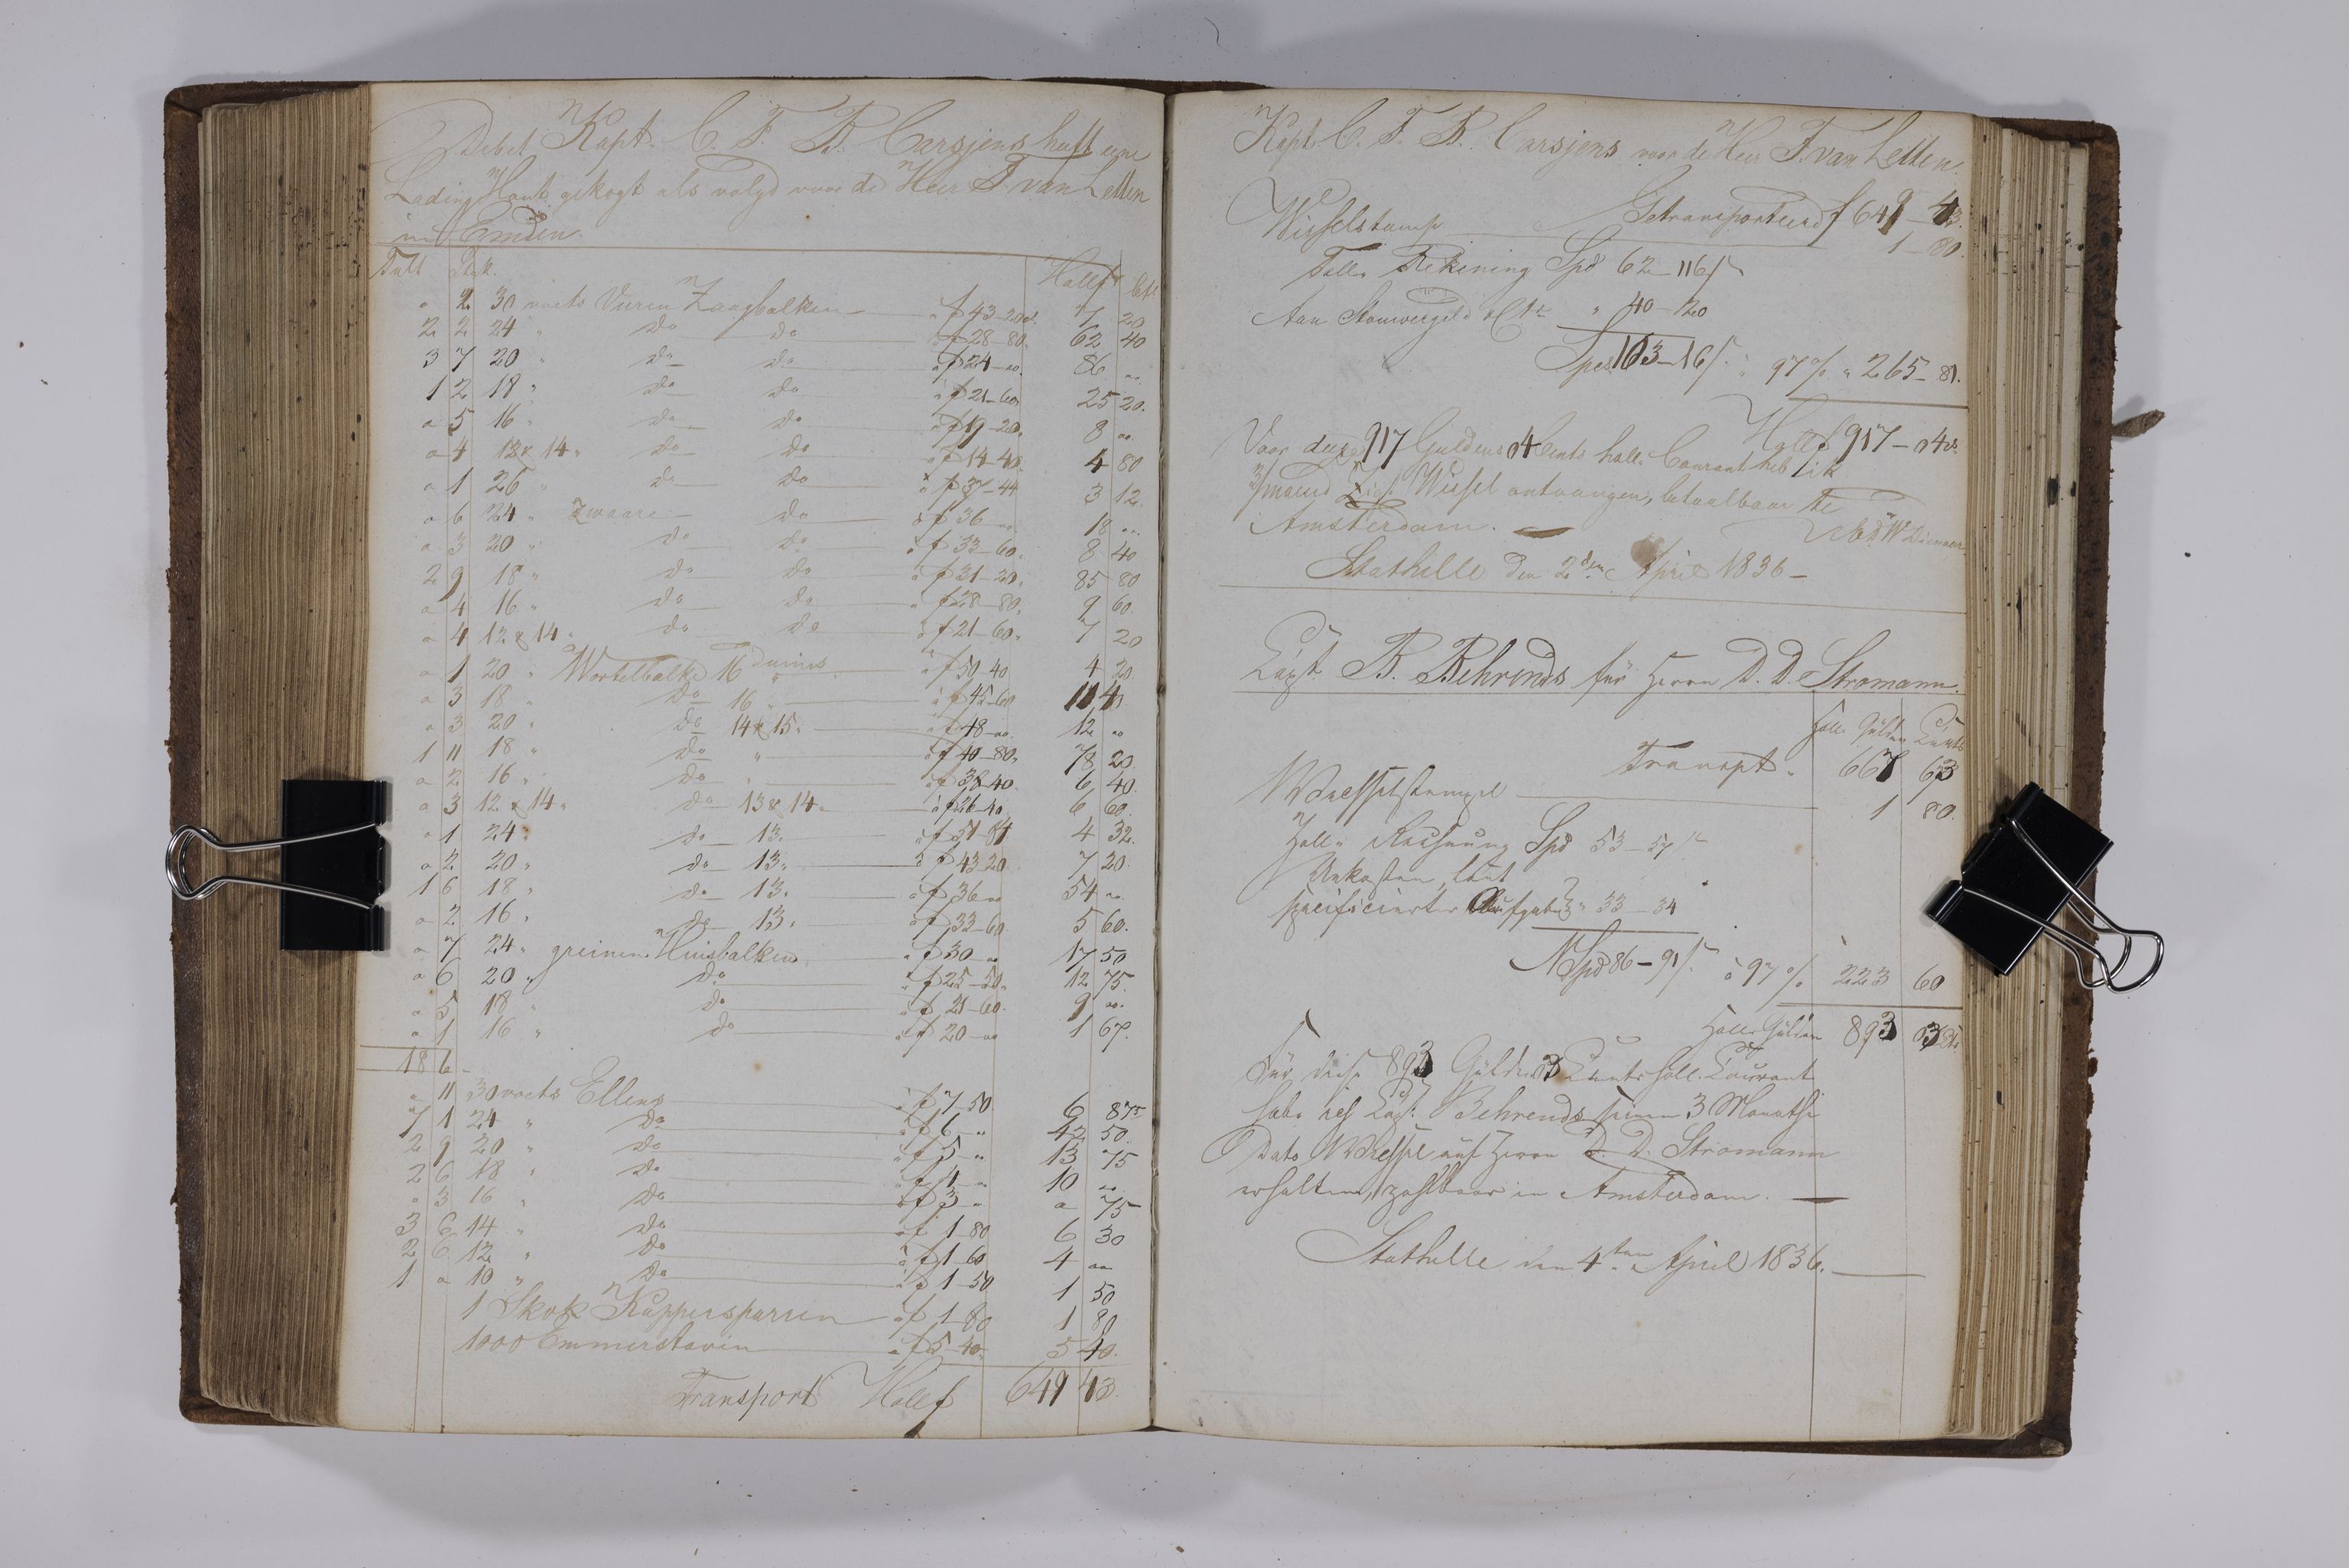 Debet Kapt. C. F. B. Carsjens haft eene
Lading Hout gekogt als volgd voor de Heer F van Letten
in Emden.
Tult Stk. Hollf Cts
" 2 30 voets Vuren Zaagbalken à f 43-20 7 20
2 2 24 " do do à f 28-80 62 40
3 7 20 " do do à f 24-" 86 "
1 2 18 " do do à f 21-60 25 20.
" 5 16 " do do à f 19-20 8 "
" 4 12 & 14 " do do à f 14-40 4 80
" 1 26 " do do à f 37-44 3 12.
" 6 24 " Zwaare do à f 36 " 18 "
" 3 20 " do do à f 33-60 8 40
2 9 18 " do do à f 31-20 85 80
" 4 16 " do do à f 28-80 9 60.
" 4 12 & 14 " do do à f 21-60 7 20
" 1 20 " Wortelbalke 16 duims à f 50-40 4 20.
" 3 18 " do 16 " à f 45-60 11 40
" 3 20 " do 14 & 15 " à f 48-" 12 "
1 11 18 " do " à f 40-80 78 20.
" 2 16 " do " à f 38-40 6 40.
" 3 12 & 14 " do 13 & 14 " à f 26-40 6 60.
" 1 24 " do 13 " à f 51-84 4 32.
" 2 20 " do 13 " à f 43 20 7 20.
1 6 18 " do 13 " à f 36 " 54 "
" 2 16 " do 13 " à f 33-60 5 60.
" 7 24 " greinen Huisbalken à f 30 " 17 50
" 6 20 " do à f 25-50 12 75.
" 5 18 " do à f 21-60 9 "
" 1 16 " do à f 20-" 1 67.
18 6 -
" 11 30 voets Ellens à f 7-50 6 875
7 1 24 " do à f 6 " 42 50.
2 9 20 " do à f 5-" 13 75
2 6 18 " do à f 4-" 10 "
" 3 16 " do à f 3 " " 75
3 6 14 " do à f 1-80 6 30
2 6 12 " do à f 1-60 4 "
1 " 10 " do à f 1-50 1 50
1 Skok Kuppersparren à f 1-80 1 80
1000 Emmerstaven à f 5-40 5 40.
Transport Hollf 649 43.
Kapt. C. F. B. Carsjens voor de Heer F. van Letten.
Getransporteerd f 649-43.
Wisselstamp 1-80.
Toll. Rekening Spd 62-116 ß
Aan 40-120
Spes 103-16 ß. " 97 % " 265-81.
Hollf 917-04 cs.
Voor deze 917 Guldens 04 Cents holl. Courant heb ik
3/maend Wissel ontvangen, betaalbaar te
Amsterdam.
Stathelle den 2den April 1836-
Capt. B. Behrends für Herrn D. D. Stromann.
Holl. Gulden Cents
Transpt. 667 63
Wechselstempel 1 80.
Zoll " Rechnung Spd 53-57 ß
Unkosten, laut
specificierter Aufgabe " 33-34
Spd 86-91 ß. à 97 % 223 60
Holl. Gulden 893 03 Cts
Für diese 893 Gulden 3 Cents holl. Courant
habe ich Capt. Behrends seinen 3 Monathe
Dato Wechsel auf Herrn D. D. Stromann
erhalten, zahlbar in Amsterdam.
Stathelle den 4ten April 1836.